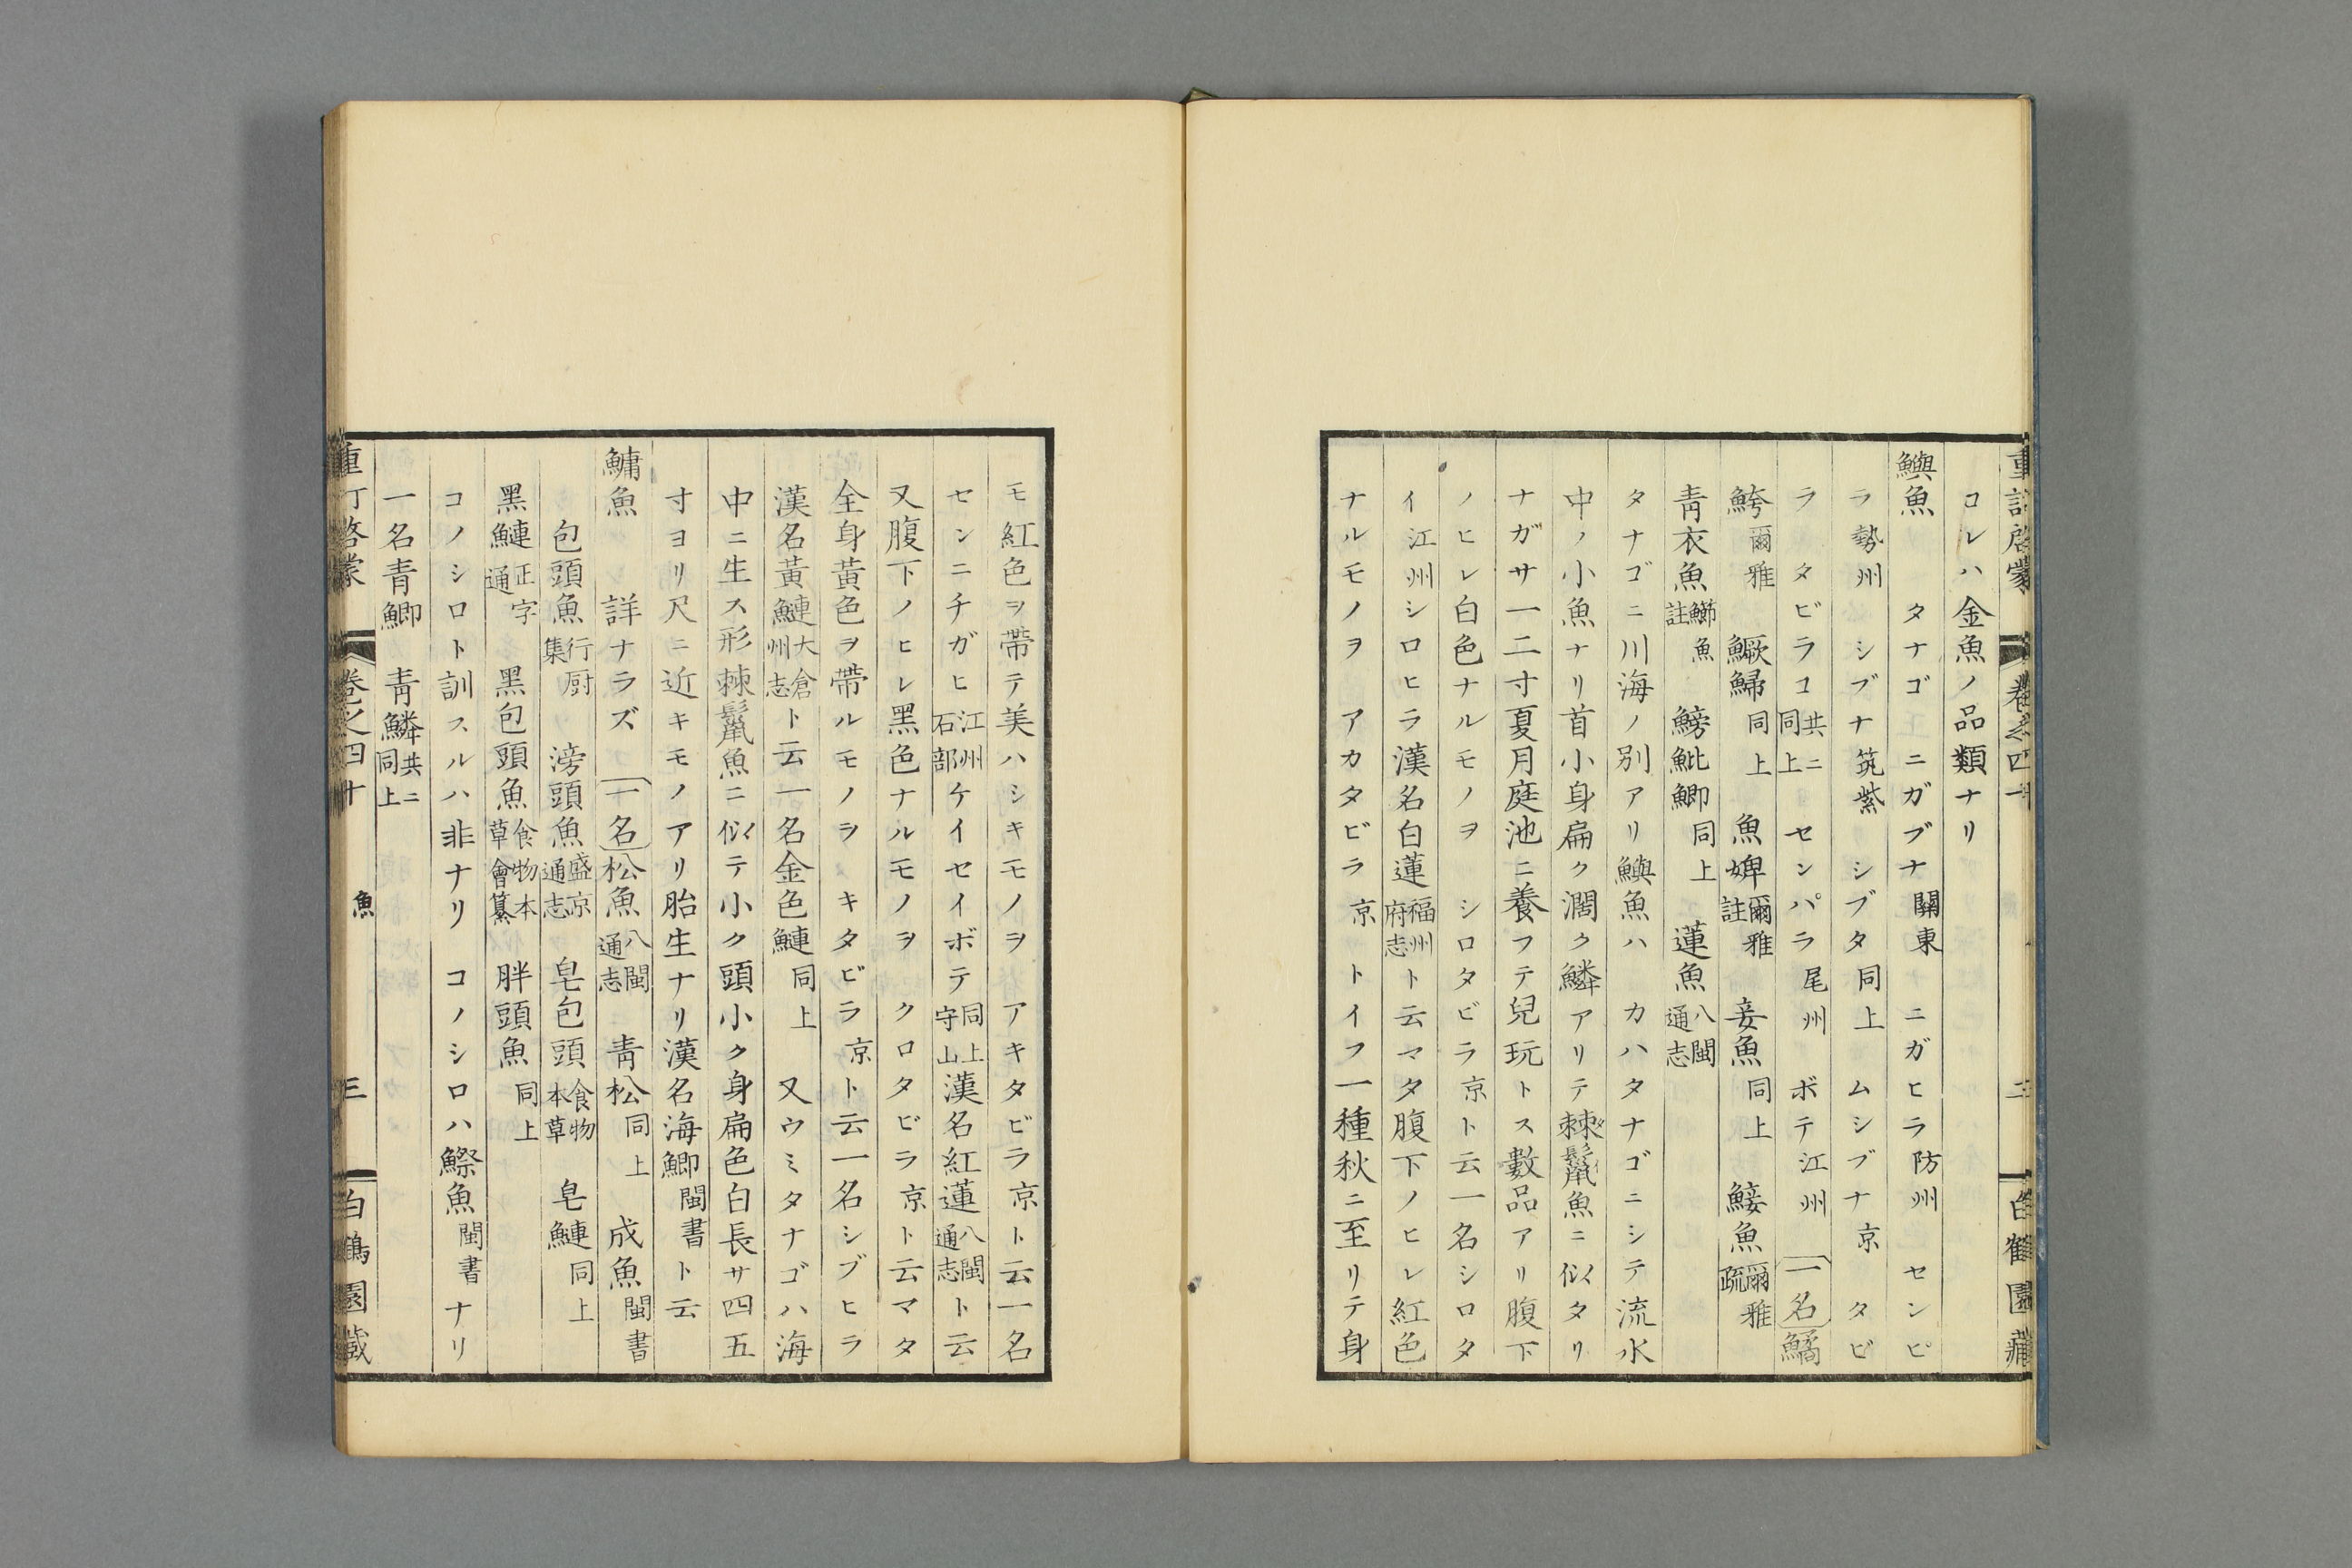 コレハ金魚ノ品類ナリ
鱮魚　タナゴ　ニガブナ關東　ニガヒラ防州　センピ
ラ勢州　シブナ筑紫　シブタ同上　ムシブナ京　タビ
ラ　タビラコ共ニ同上　センパラ尾州　ボテ江州　一名鱊
鮬爾雅　鱖鯞同上　魚婢爾雅註　妾魚同上　鯜魚爾雅疏
青衣魚鰤魚註　鰟魮鯽同上　蓮魚八閩通志
タナゴニ川海ノ別アリ鱮魚ハ　カハタナゴニシテ流水
中ノ小魚ナリ首小身扁ク濶ク鱗アリテ棘鬛魚ニ似タリ
ナガサ一二寸夏月庭池ニ養フテ兒玩トス數品アリ腹下
ノヒレ白色ナルモノヲ　シロタビラ京ト云一名シロタ
イ江州シロヒラ漢名白蓮福州府志ト云マタ腹下ノヒレ紅色
ナルモノヲ　アカタビラ京　トイフ一種秋ニ至リテ身
モ紅色ヲ帶テ美ハシキモノヲ　アキタビラ京ト云一名
センニチガヒ江州石部ケイセイボテ同上守山漢名紅蓮八閩通志ト云
又腹下ノヒレ黑色ナルモノヲ　クロタビラ京ト云マタ
全身黄色ヲ帶ルモノヲ　キタビラ京ト云一名シブヒラ
漢名黄鰱大倉州志ト云一名金色鰱同上　又ウミタナゴハ海
中ニ生ス形棘鬛魚ニ似テ小ク頭小ク身扁色白長サ四五
寸ヨリ尺ニ近キモノアリ胎生ナリ漢名海鯽閩書ト云
鱅魚　詳ナラズ　一名松魚八閩通志　青松同上　成魚閩書
包頭魚行厨集　滂頭魚盛京通志　皂包頭食物本草　皂鰱同上
黑鰱正字通　黑包頭魚食物本草會纂　胖頭魚同上
コノシロト訓スルハ非ナリ　コノシロハ鰶魚閩書ナリ
一名青鯽　青鱗共ニ同上
卷之四十　魚　三　白鶴園藏